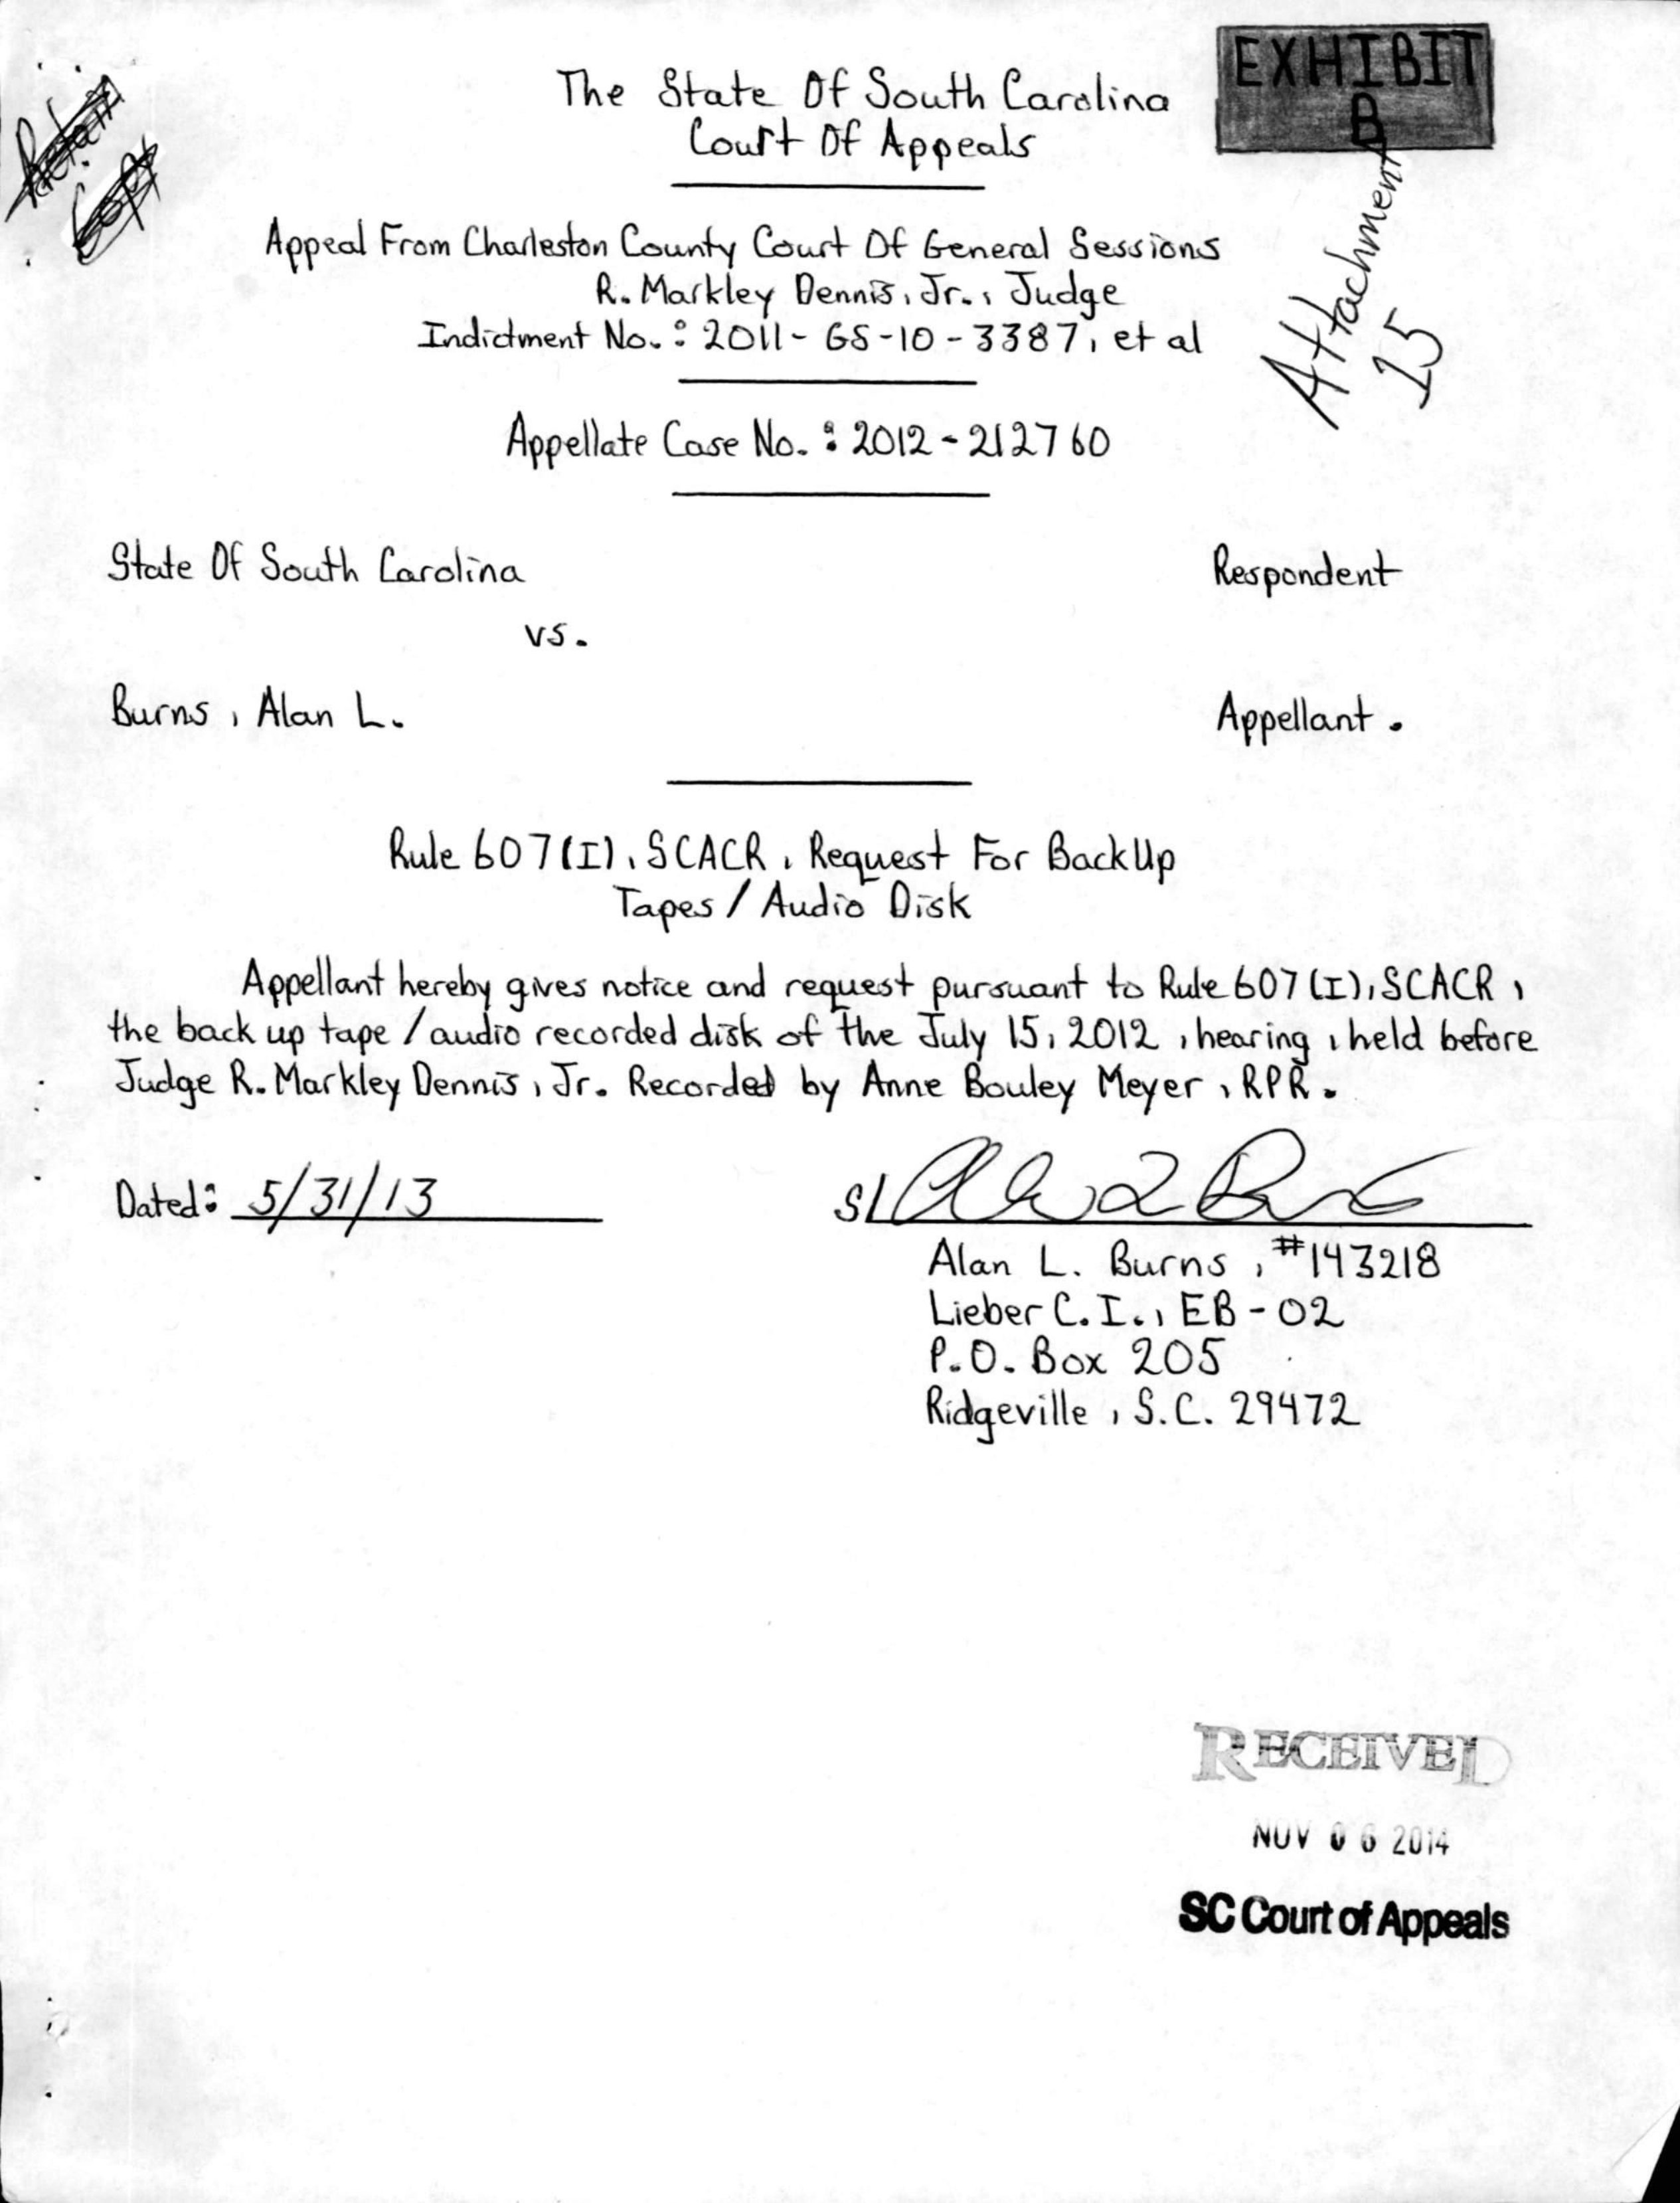 Retain
Copy
EXHIBIT
B
Attachment
15
The State Of South Carolina
Court Of Appeals
Appeal From Charleston County Court Of General Sessions
R. Markley Dennis, Jr., Judge
Indictment No.: 2011-GS-10-3387, et al
Appellate Case No.: 2012-212760
State Of South Carolina Respondent
vs.
Burns, Alan L. Appellant.
Rule 607(I), SCACR, Request For BackUp
Tapes / Audio Disk
Appellant hereby gives notice and request pursuant to Rule 607(I), SCACR,
the back up tape / audio recorded disk of the July 15, 2012, hearing, held before
Judge R. Markley Dennis, Jr. Recorded by Anne Bouley Meyer, RPR.
Dated: 5/31/13 S/ Alan L Burns
Alan L. Burns, #143218
Lieber C.I., EB-02
P.O. Box 205
Ridgeville, S.C. 29472
RECEIVED
NOV 06 2014
SC Court of Appeals